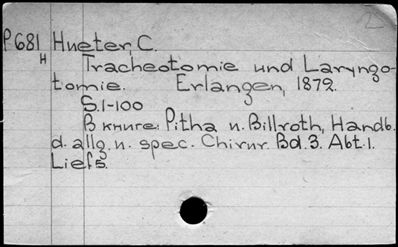 2
P681 Hueter, C.
H Tracheotomie und Laryngo-
tomie. Erlangen, 1872.
S.1-100
В книге: Pitha u. Billroth, Handb.
d. allg. u. spec. Chirur. Bd. 3. Abt. 1.
Lief 5.